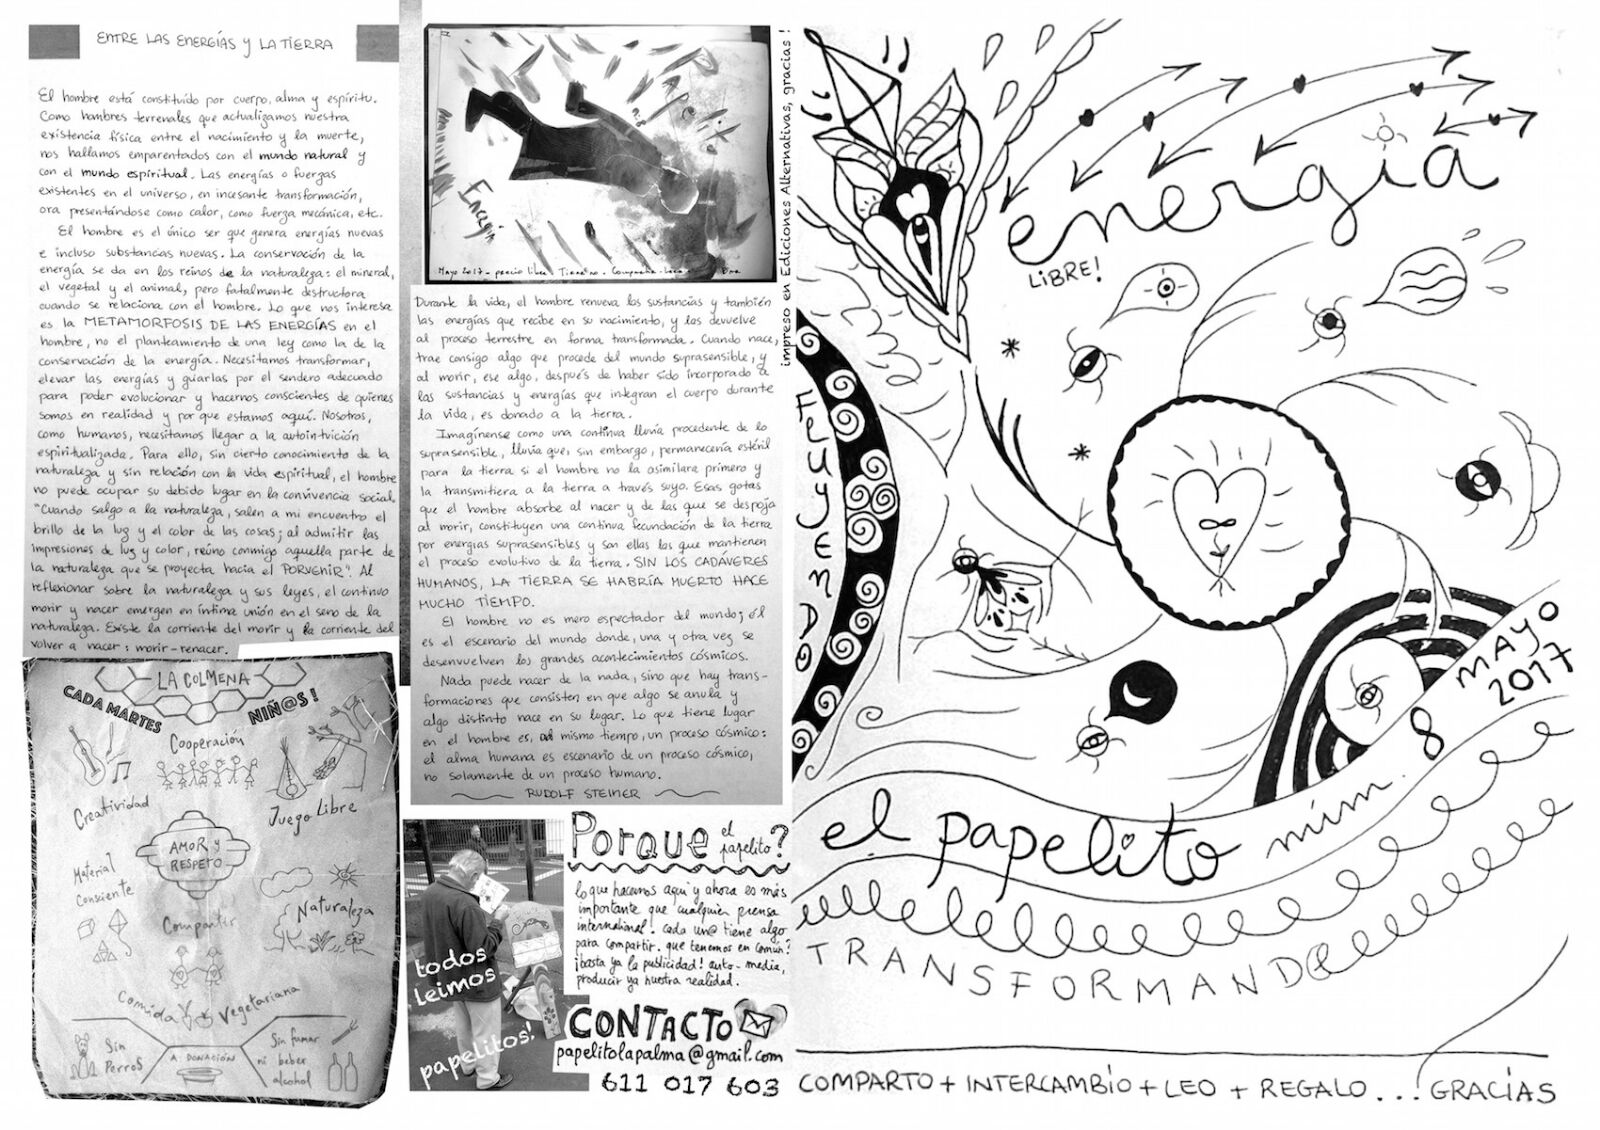 ENTRE LAS ENERGÍAS y LA TIERRA
El hombre está constituído por cuerpo, alma y espíritu.
Como hombres terrenales que actualizamos nuestra
existencia física entre el nacimiento y la muerte,
nos hallamos emparentados con el mundo natural y
con el mundo espiritual. Las energías o fuerzas
existentes en el universo, en incesante transformación,
ora presentándose como calor, como fuerza mecánica, etc.
El hombre es el único ser que genera energías nuevas
e incluso substancias nuevas. La conservación de la
energía se da en los reinos de la naturaleza: el mineral,
el vegetal y el animal, pero fatalmente destructora
cuando se relaciona con el hombre. Lo que nos interesa
es la METAMORFOSIS DE LAS ENERGÍAS en el
hombre, no el planteamiento de una ley como la de la
conservación de la energía. Necesitamos transformar,
elevar las energías y guiarlas por el sendero adecuado
para poder evolucionar y hacernos conscientes de quienes
somos en realidad y por que estamos aquí. Nosotros,
como humanos, necesitamos llegar a la autointuición
espiritualizada. Para ello, sin cierto conocimiento de la
naturaleza y sin relación con la vida espiritual, el hombre
no puede ocupar su debido lugar en la convivencia social.
"Cuando salgo a la naturaleza, salen a mi encuentro el
brillo de la luz y el color de las cosas; al admitir las
impresiones de luz y color, reúno conmigo aquella parte de
la naturaleza que se proyecta hacia el PORVENIR". Al
reflexionar sobre la naturaleza y sus leyes, el continuo
morir y nacer emergen en íntima unión en el seno de la
naturaleza. Existe la corriente del morir y la corriente del
volver a nacer: morir-renacer.
LA COLMENA
CADA MARTES
NIÑ@S!
Cooperación
Creatividad
Juego Libre
AMOR y
RESPETO
Material
Consciente
Compartir
Naturaleza
Comida Vegetariana
Sin
Perros
A DONACIÓN
Sin fumar
ni beber
alcohol
Energía
Mayo 2017 - precio libre
Durante la vida, el hombre renueva las sustancias y también
las energías que recibe en su nacimiento, y las devuelve
al proceso terrestre en forma transformada. Cuando nace,
trae consigo algo que procede del mundo suprasensible, y
al morir, ese algo, después de haber sido incorporado a
las sustancias y energías que integran el cuerpo durante
la vida, es donado a la tierra.
Imagínense como una continua lluvia procedente de lo
suprasensible, lluvia que, sin embargo, permanecería estéril
para la tierra si el hombre no la asimilara primero y
la transmitiera a la tierra a través suyo. Esas gotas
que el hombre absorbe al nacer y de las que se despoja
al morir, constituyen una continua fecundación de la tierra
por energías suprasensibles y son ellas las que mantienen
el proceso evolutivo de la tierra. SIN LOS CADÁVERES
HUMANOS, LA TIERRA SE HABRÍA MUERTO HACE
MUCHO TIEMPO.
El hombre no es mero espectador del mundo; él
es el escenario del mundo donde, una y otra vez se
desenvuelven los grandes acontecimientos cósmicos.
Nada puede nacer de la nada, sino que hay trans-
formaciones que consisten en que algo se anula y
algo distinto nace en su lugar. Lo que tiene lugar
en el hombre es, al mismo tiempo, un proceso cósmico:
el alma humana es escenario de un proceso cósmico,
no solamente de un proceso humano.
RUDOLF STEINER
todos
leimos
papelitos!
Porque el
papelito?
lo que hacemos aquí y ahora es más
importante que cualquier prensa
international! cada un@ tiene algo
para compartir. que tenemos en común?
¡basta ya la publicidad! auto-media,
producir ya nuestra realidad.
CONTACTO
papelitolapalma@gmail.com
611 017 603
impreso en Ediciones Alternativas, gracias!
energía
LiBRE!
FLUYENDO
MAYO
2017
el papelito núm. 8
TRANSFORMANDO
COMPARTO + INTERCAMBIO + LEO + REGALO... GRACIAS